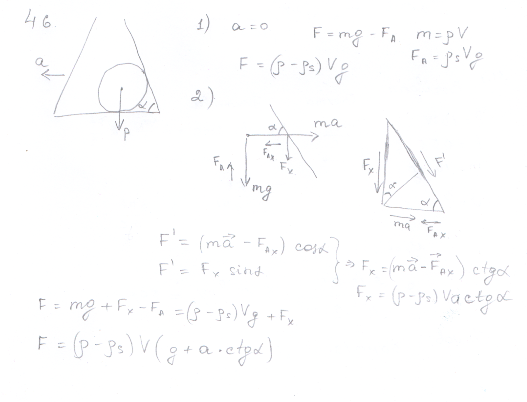 46.
1) a = 0
F = mg - F_A
m = ρV
F = (ρ - ρ_s) Vg
F_A = ρ_s Vg
a
α
P
2)
α
ma
F_A
F_Ax
F_x
mg
F_x
F'
α
α
ma
F_Ax
F' = (ma⃗ - F_Ax) cosα
F' = F_x sinα
} ⇒ F_x = (ma⃗ - F⃗_Ax) ctgα
F_x = (ρ - ρ_s) Va ctgα
F = mg + F_x - F_A = (ρ - ρ_s) Vg + F_x
F = (ρ - ρ_s) V (g + a · ctgα)